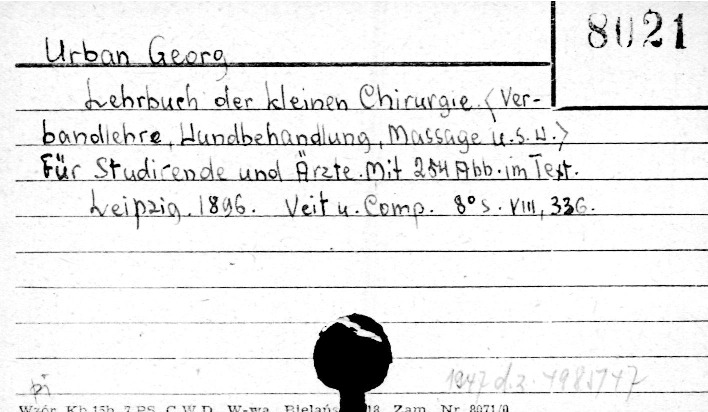 8021
Urban Georg
Lehrbuch der kleinen Chirurgie. <Ver-
bandlehre, Wundbehandlung, Massage u.s.w.>
Für Studirende und Ärzte. Mit 254 Abb. im Text.
Leipzig. 1896. Veit u. Comp. 8° s. VIII, 336.
1947 d.z.
Wzór Kb 15b 7 PS. C.W.D. W-wa, Bielańs 18 Zam. Nr. 8071/0